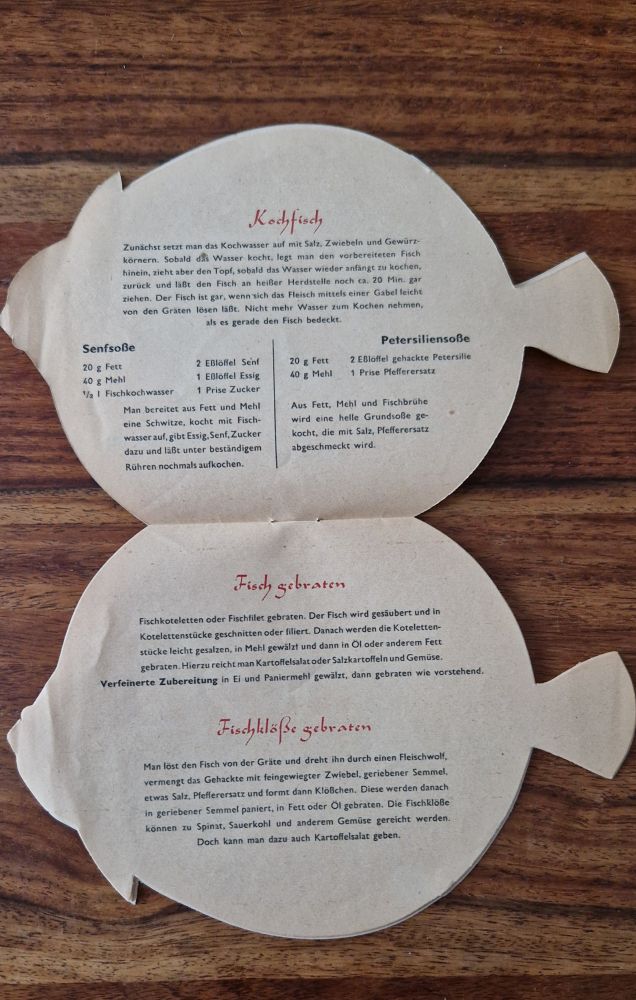 Kochfisch
Zunächst setzt man das Kochwasser auf mit Salz, Zwiebeln und Gewürz-
körnern. Sobald das Wasser kocht, legt man den vorbereiteten Fisch
hinein, zieht aber den Topf, sobald das Wasser wieder anfängt zu kochen,
zurück und läßt den Fisch an heißer Herdstelle noch ca. 20 Min. gar
ziehen. Der Fisch ist gar, wenn sich das Fleisch mittels einer Gabel leicht
von den Gräten lösen läßt. Nicht mehr Wasser zum Kochen nehmen,
als es gerade den Fisch bedeckt.
Senfsoße
20 g Fett 2 Eßlöffel Senf
40 g Mehl 1 Eßlöffel Essig
½ l Fischkochwasser 1 Prise Zucker
Man bereitet aus Fett und Mehl
eine Schwitze, kocht mit Fisch-
wasser auf, gibt Essig, Senf, Zucker
dazu und läßt unter beständigem
Rühren nochmals aufkochen.
Petersiliensoße
20 g Fett 2 Eßlöffel gehackte Petersilie
40 g Mehl 1 Prise Pfefferersatz
Aus Fett, Mehl und Fischbrühe
wird eine helle Grundsoße ge-
kocht, die mit Salz, Pfefferersatz
abgeschmeckt wird.
Fisch gebraten
Fischkoteletten oder Fischfilet gebraten. Der Fisch wird gesäubert und in
Kotelettenstücke geschnitten oder filiert. Danach werden die Koteletten-
stücke leicht gesalzen, in Mehl gewälzt und dann in Öl oder anderem Fett
gebraten. Hierzu reicht man Kartoffelsalat oder Salzkartoffeln und Gemüse.
Verfeinerte Zubereitung in Ei und Paniermehl gewälzt, dann gebraten wie vorstehend.
Fischklöße gebraten
Man löst den Fisch von der Gräte und dreht ihn durch einen Fleischwolf,
vermengt das Gehackte mit feingewiegter Zwiebel, geriebener Semmel,
etwas Salz, Pfefferersatz und formt dann Klößchen. Diese werden danach
in geriebener Semmel paniert, in Fett oder Öl gebraten. Die Fischklöße
können zu Spinat, Sauerkohl und anderem Gemüse gereicht werden.
Doch kann man dazu auch Kartoffelsalat geben.